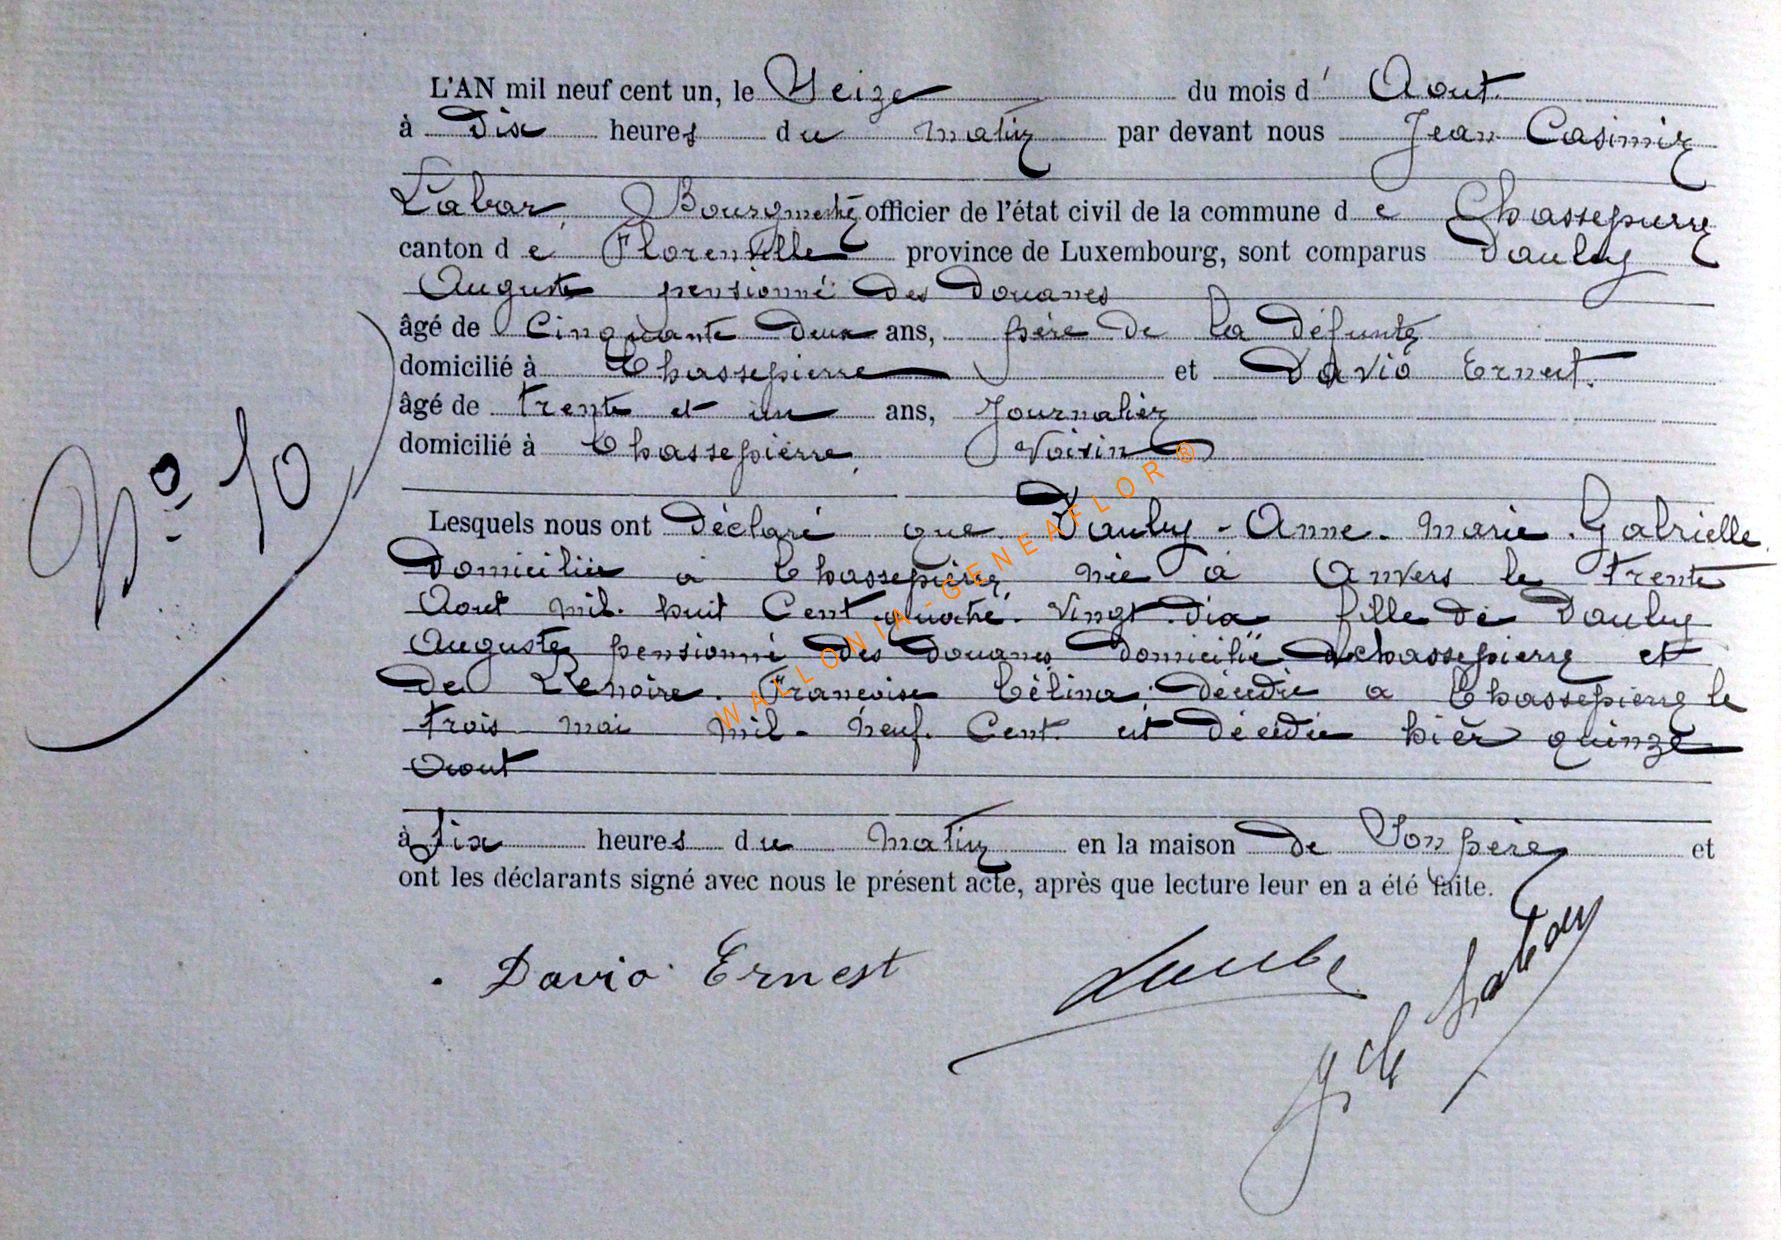 L'AN mil neuf cent un, le Seize du mois d' Aout
à Dix heures du matin par devant nous Jean Casimir
Labar Bourgmestre officier de l'état civil de la commune de Chassepierre
canton de Florenville province de Luxembourg, sont comparus Dauby
Auguste pensionné des Douanes
âgé de Cinquante deux ans, père de la défunte
domicilié à Chassepierre et David Ernest.
âgé de trente et un ans, Journalier
domicilié à Chassepierre, Voisin
Nº 10
Lesquels nous ont déclaré que Dauby - Anne - Marie - Gabrielle
Domiciliée a Chassepierre née à Anvers le trente
Aout mil huit Cent quatre Vingt dix fille de Dauby
Auguste pensionné des Douanes domicilié à Chassepierre et
De Lenoire Francoise Célina décédée a Chassepierre le
trois mai mil neuf Cent est décédée hier quinze
Aout
à six heures du matin en la maison de son père et
ont les déclarants signé avec nous le présent acte, après que lecture leur en a été faite.
David Ernest Dauby
J. C. Labar
WALLONIA-GENEAFLOR®